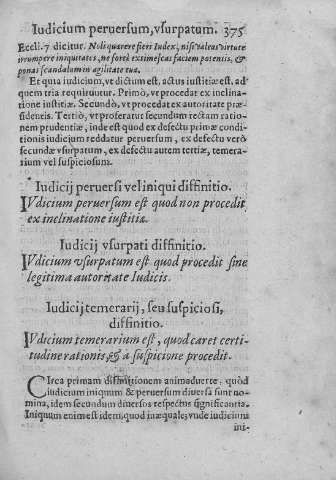 Iudicium peruersum, vsurpatum. 375
Eccli. 7 dicitur. Noli quærere fieri Iudex, nisi valeas virtute
irrumpere iniquitates, ne fortè extimescas faciem potentis, &
ponas scandalum in agilitate tua.
Et quia iudicium, vt dictum est, actus iustitiæ est, ad-
quem tria requiruntur. Primò, vt procedat ex inclina
tione iustitiæ. Secundò, vt procedat ex autoritate præ
sidentis. Tertiò, vt proferatur secundum rectam ratio-
nem prudentiæ, inde est quod ex defectu primæ condi
tionis iudicium reddatur peruersum, ex defectu verò
secundæ vsurpatum, ex defectu autem tertiæ, temera-
rium vel suspiciosum.
Iudicij peruersi vel iniqui diffinitio.
IVdicium peruersum est quod non procedit
ex inclinatione iustitiæ.
Iudicij vsurpati diffinitio.
IVdicium vsurpatum est quod procedit sine
legitima autoritate Iudicis.
Iudicij temerarij, seu suspiciosi,
diffinitio.
IVdicium temerarium est, quod caret certi-
tudine rationis, & a suspicione procedit.
CIrca primam diffinitionem animaduerte, quòd
iudicium iniquum & peruersum diuersa sunt no-
mina, idem secundum diuersos respectus significantia.
Iniquum enim est idem, quod inæquale, vnde iudicium
ini-